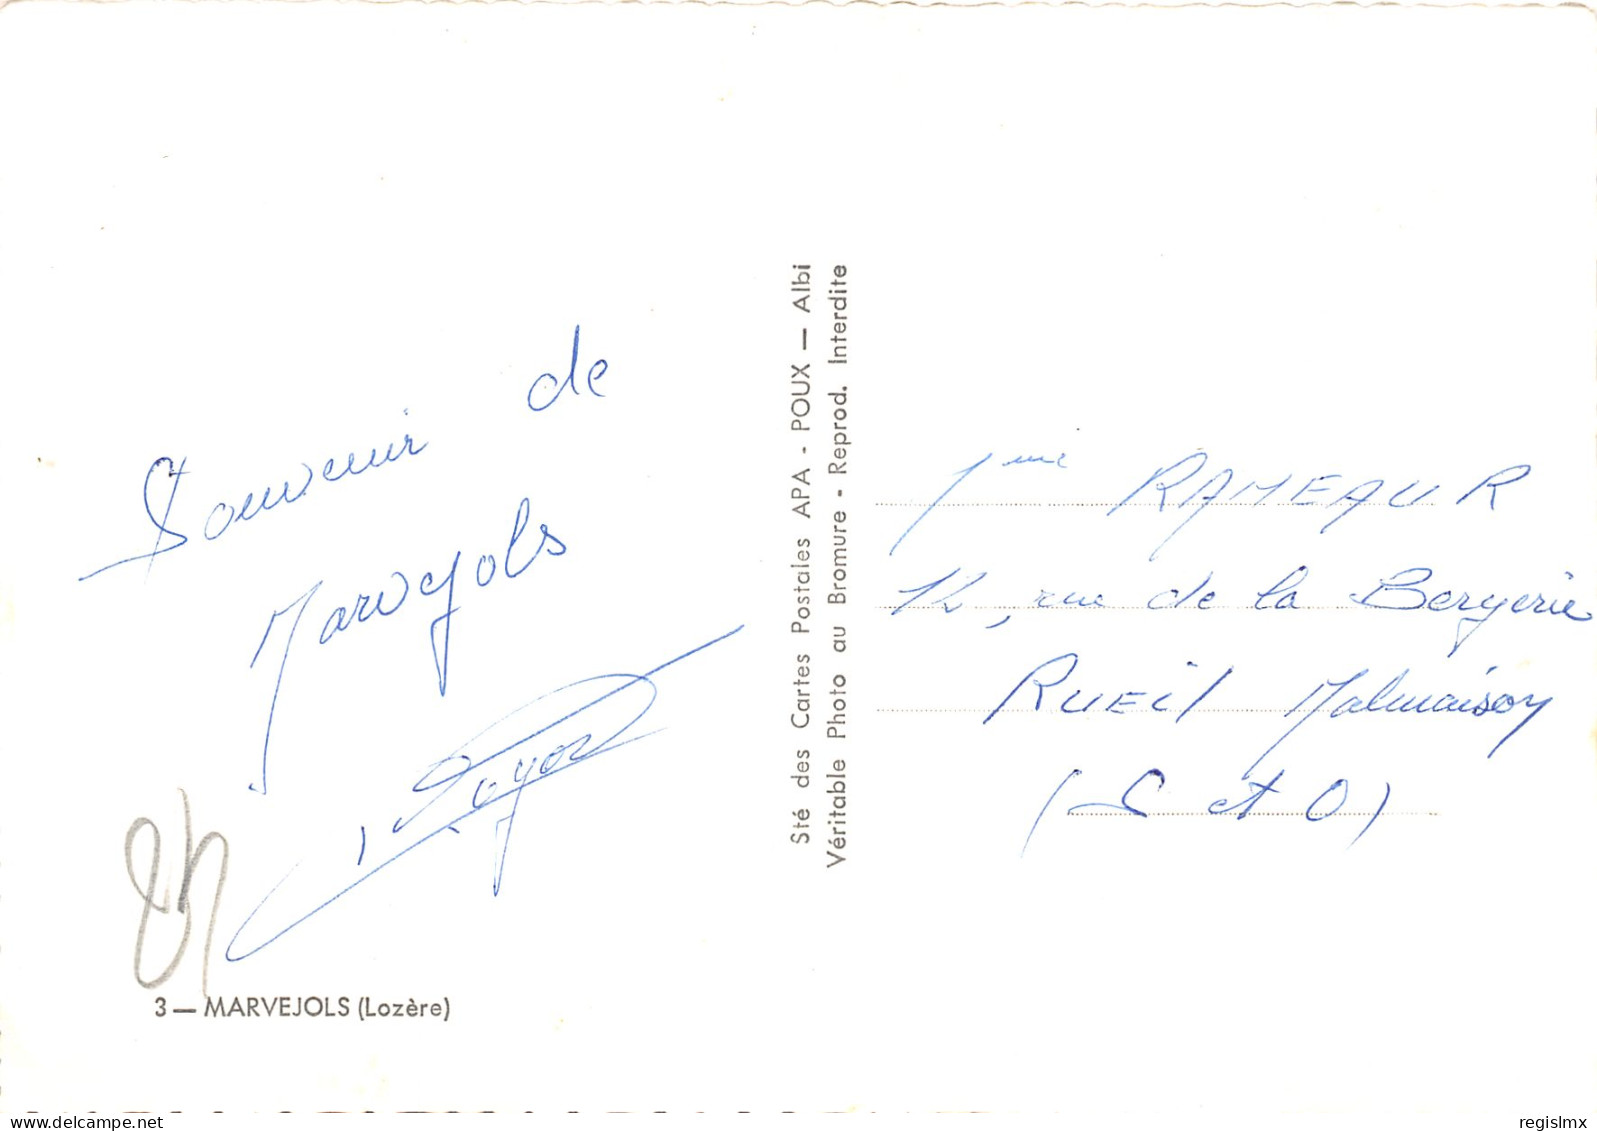 Souvenir de
Marvejols
3 — MARVEJOLS (Lozère)
Sté des Cartes Postales APA - POUX — Albi
Véritable Photo au Bromure - Reprod. Interdite
Mme RAMEAU R
12, rue de la Bergerie
RUEil Malmaison
(S et O)
regislmx